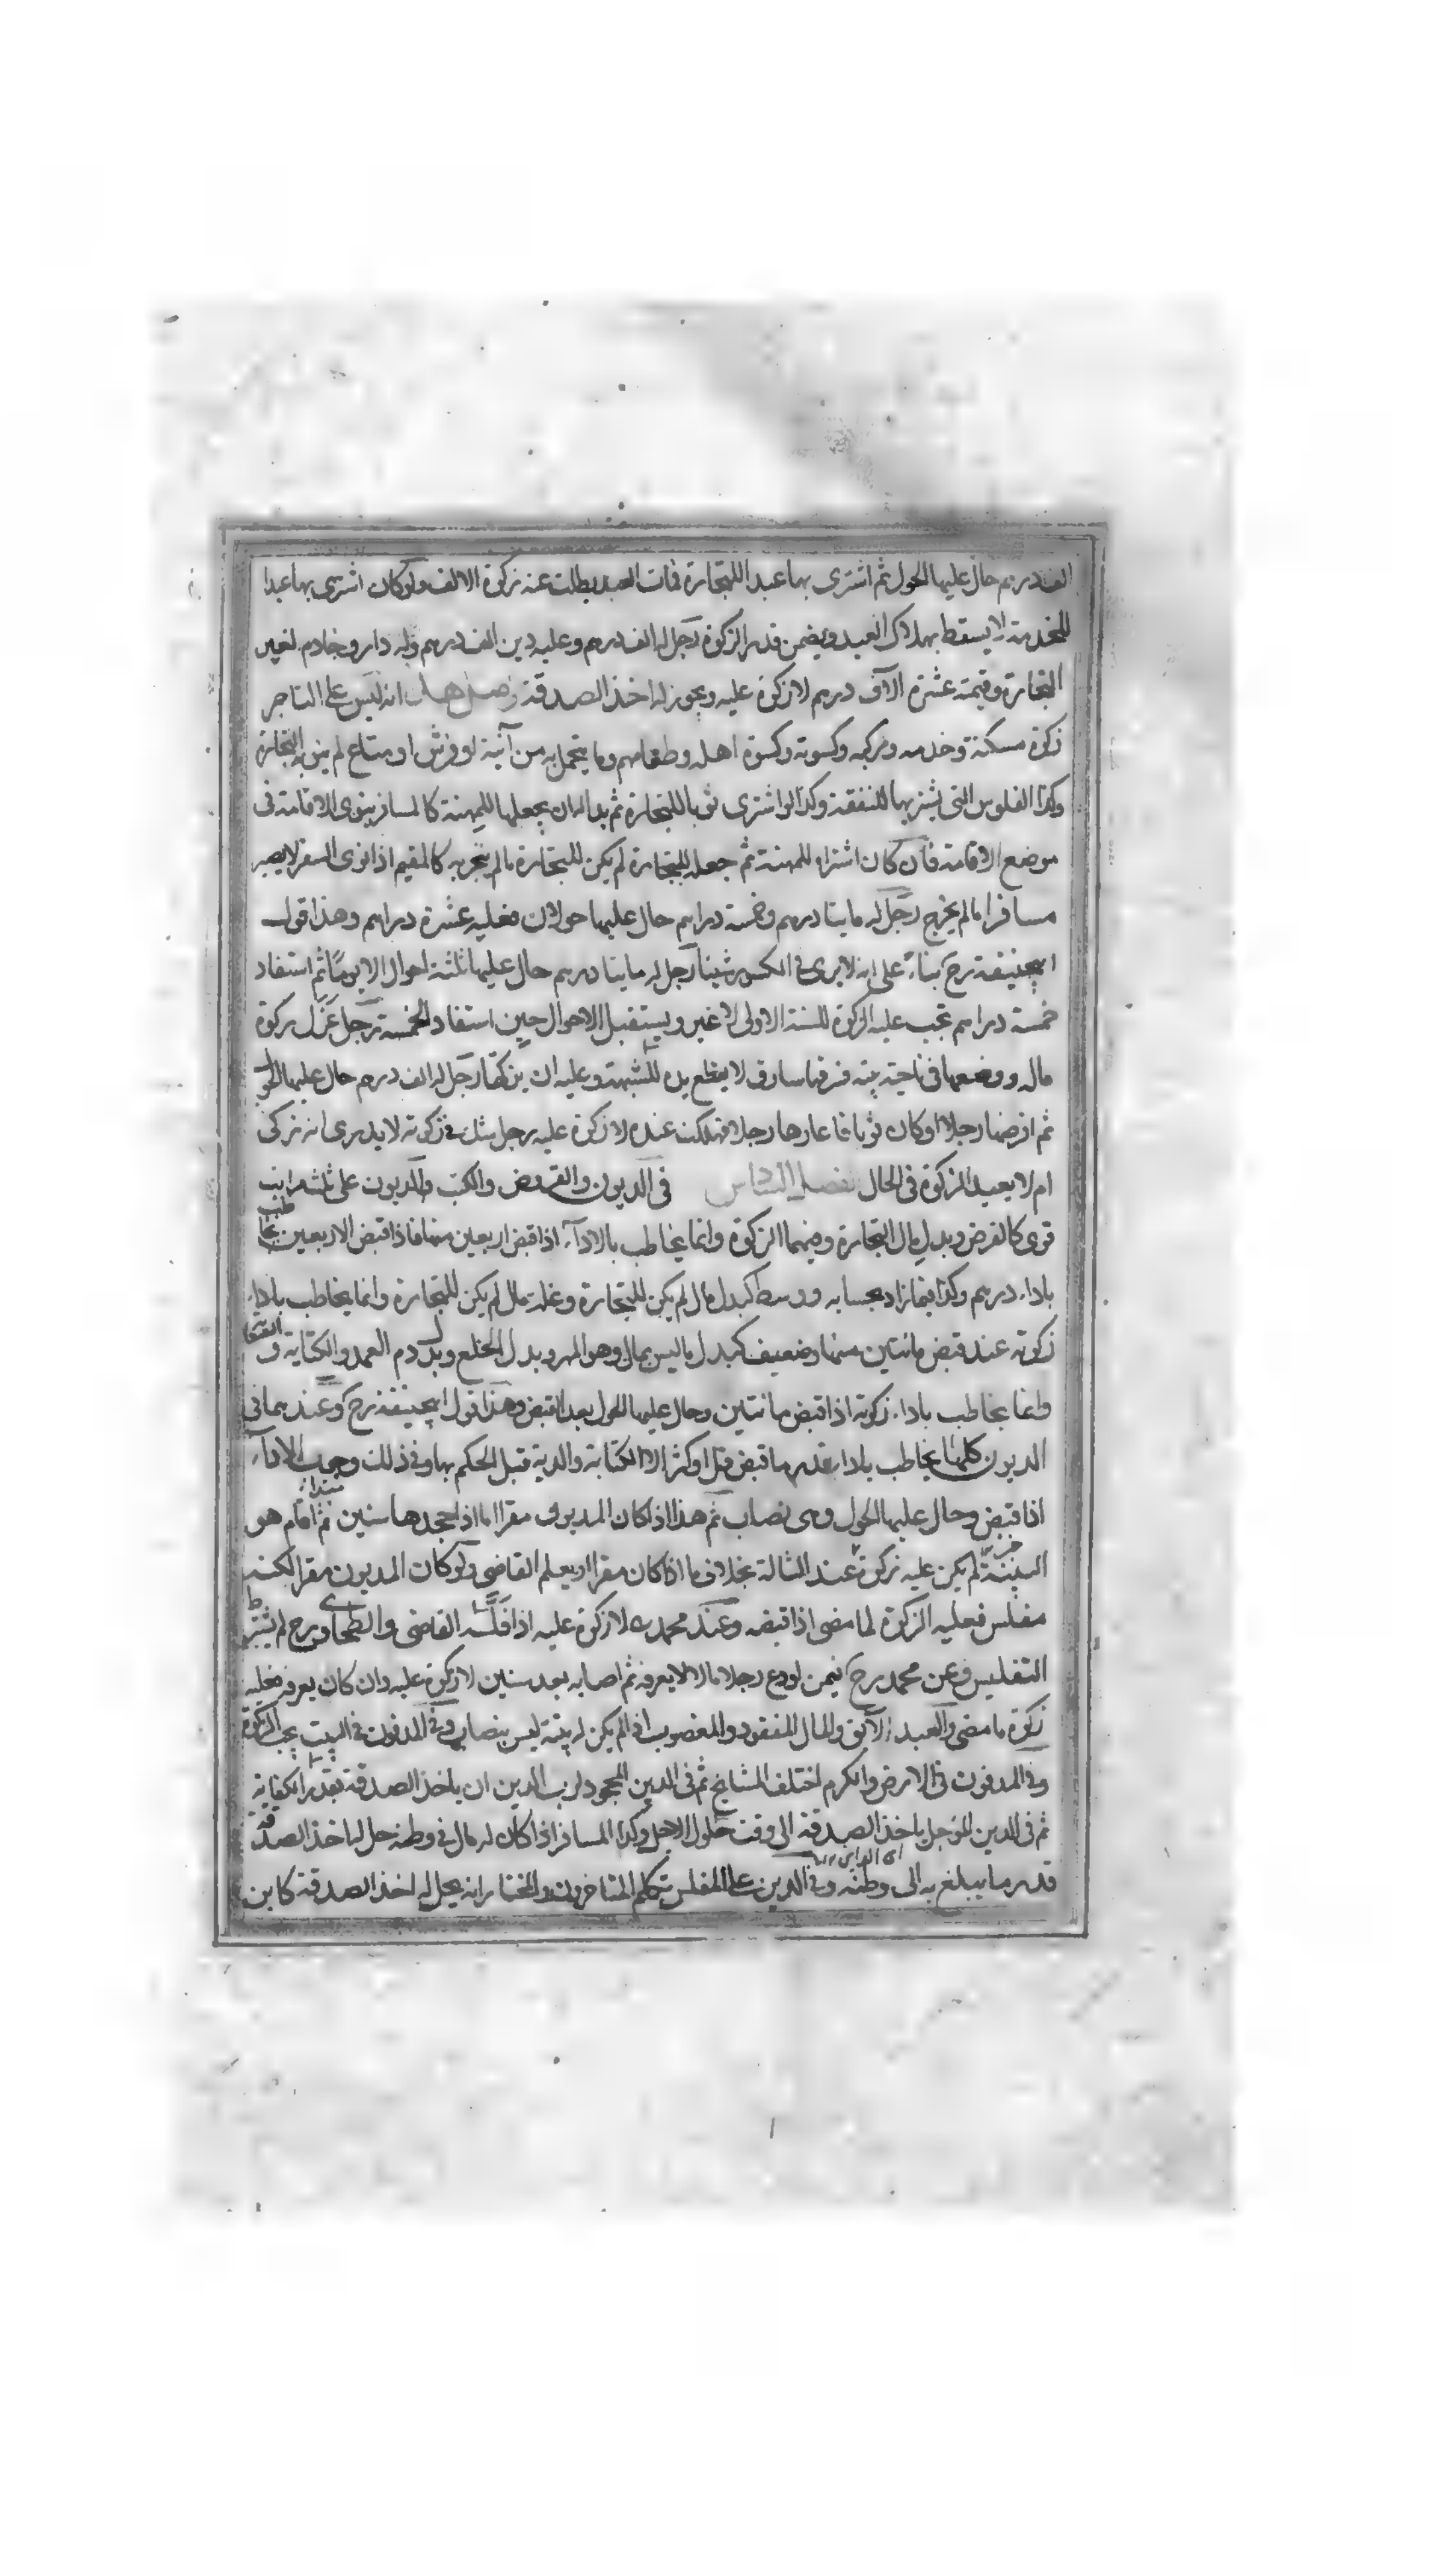 الف درهم حال عليها الحول ثم اشترى بها عبدا للتجارة فمات العبد بطلت عنه زكوة الالف ولوكان اشترى بها عبدا
للخدمة لا يسقط بهلاك العبد ويضمن قدر الزكوة رجل له الف درهم وعليه دين الف درهم وله دار وخادم لغير
التجارة وقيمته عشرة الآف درهم لا زكوة عليه ويجوز له اخذ الصدقة وصل هـل انه ليس على التاجر
زكوة مسكنه وخدمه ومركبه وكسوته وكسوة اهله وطعامهم وما يتجمل به من آنية او فرش او متاع لم ينو به التجارة
وكذا الفلوس التى يشتريها للنفقة وكذا لو اشترى ثوبا للتجارة ثم بدا له ان يجعلها للمهنة كالمسافر ينوى الاقامة فى
موضع الاقامة فان كان اشتراه للمهنة ثم جعله للتجارة لم يكن للتجارة مالم يتجر به كالمقيم اذا نوى السفر لا يصير
مسافرا مالم يخرج رجل له مايتا درهم وخمسة دراهم حال عليها حولان فعليه عشرة دراهم وهذا قول
ابيحنيفة رح بناء على انه لا يرى فى الكسور شيئا رجل له مايتا درهم حال عليها ثلثة احوال الا يوما ثم استفاد
خمسة دراهم تجب عليه الزكوة للسنة الاولى لا غير ويستقبل الاحوال حين استفاد الخمسة رجل عزل زكوة
ماله ووضعها فى ناحية بيته فسرقها سارق لا يقطع يده للشبهة وعليه ان يزكها رجل له الف درهم حال عليها الحول
ثم اقرضها رجلا او كان ثوبا فاعارها رجلا فهلكت عنده لا زكوة عليه رجل شك فى زكوته لا يدرى انه زكى
ام لا يعيد الزكوة فى الحال الفصل السادس فى الديون والقروض والكتب والديون على ثلثة مراتب
قوى كالقرض وبدل مال التجارة وفيهما الزكوة وانما يخاطب بالادآء اذا قبض اربعين منها فاذا قبض الاربعين يخاطب
باداء درهم وكذا فيما زاد بحسابه ووسط كبدل مال لم يكن للتجارة وغلة مال لم يكن للتجارة وانما يخاطب باداء
زكوته عند قبض مائتين منها وضعيف كبدل ماليس بمال وهو المهر وبدل الخلع وبدل دم العمد والكتابة و
وانما يخاطب باداء زكوته اذا قبض مائتين وحال عليها الحول بعد القبض وهذا قول ابيحنيفة رح وعندهما فى
الديون كلها يخاطب باداء بقدر ما قبض قل او كثر الا الكتابة والدية قبل الحكم بها وفى ذلك وجب الادآء
اذا قبض وحال عليها الحول وهى نصاب ثم هذا اذا كان المديون مقرا اما اذا جحدها سنين ثم اقام هو
البينة لم يكن عليه زكوة عند الثالثة بخلاف ما اذا كان مقرا او يعلم القاضى ولو كان المديون مقرا لكنه
مفلس فعليه الزكوة لما مضى اذا قبضه وعند محمد لا زكوة عليه اذا فلسه القاضى والطحاوى رح لم يشترط
التفليس وعن محمد رح فيمن اودع رجلا مالا لا يعرفه ثم اصابه بعد سنين لا زكوة عليه وان كان يعرفه فعليه
زكوة ما مضى والعبد الآبق والمال المفقود والمغصوب اذا لم يكن له بينة ليس بنصاب وفى المدفون فى البيت يجب الزكوة
وفى المدفون فى الارض والكرم اختلف المشايخ ثم فى الدين المجحود لرب الدين ان ياخذ الصدقة بقدر الكفاية
ثم فى الدين المؤجل ياخذ الصدقة الى وقت حلول الاجل وكذا المسافر اذا كان له مال فى وطنه حل له اخذ الصدقة
قدر ما يبلغ به الى وطنه وفى الدين على المفلس تكلم المتاخرون والمختار انه يحل له اخذ الصدقة كابن